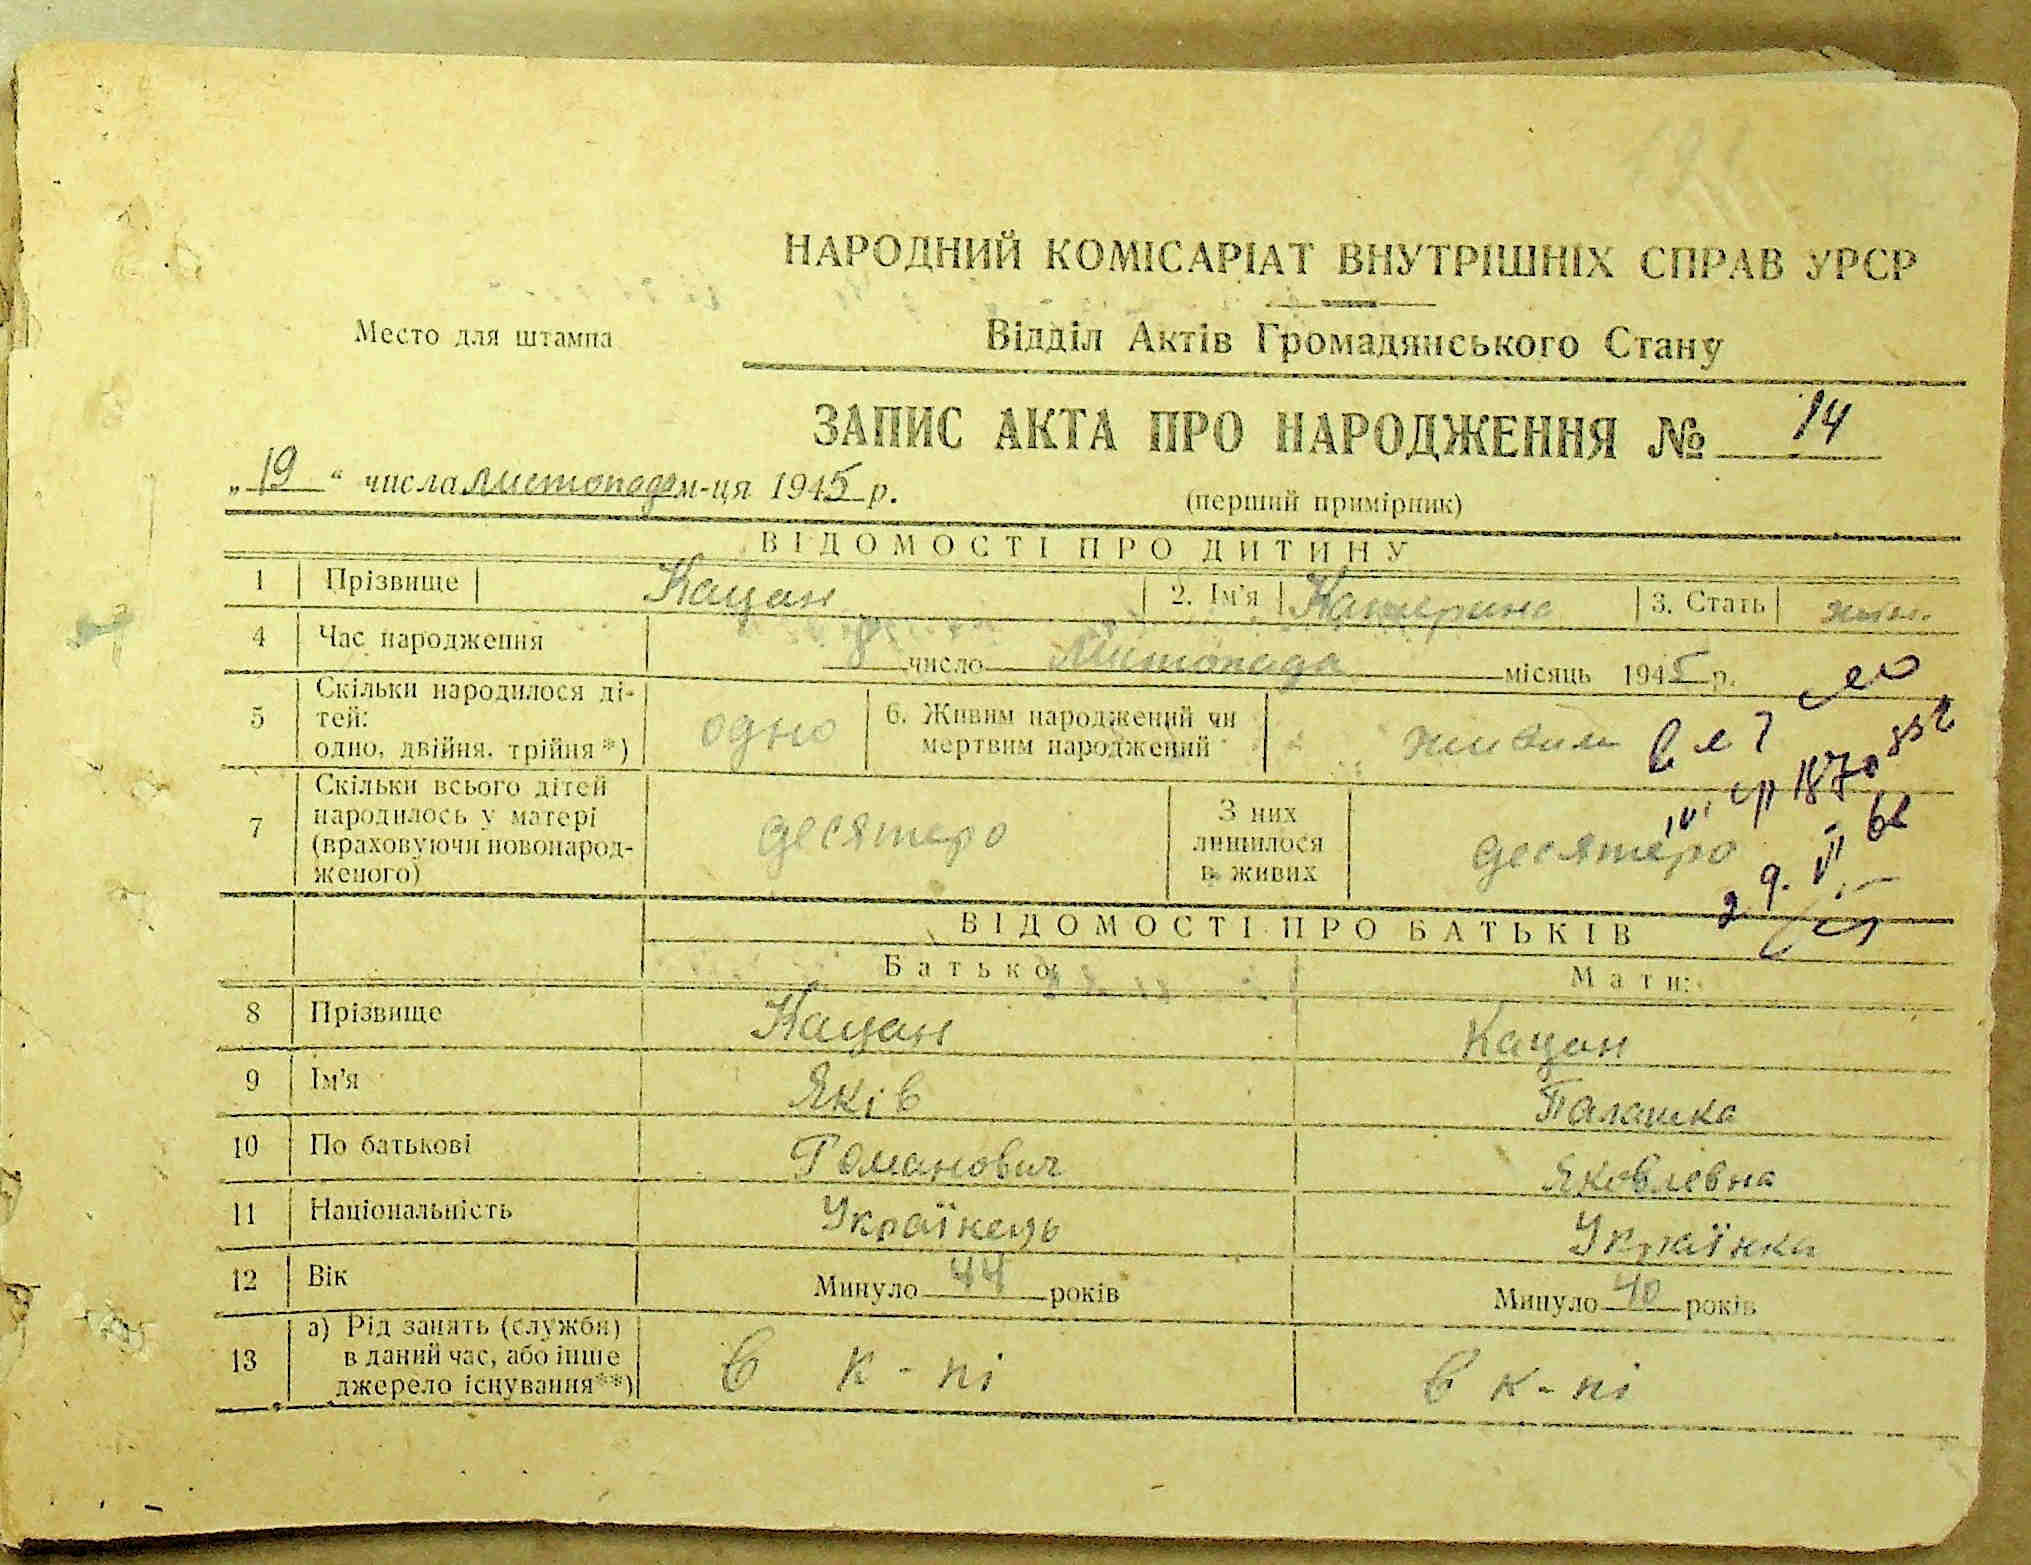 НАРОДНИЙ КОМІСАРІАТ ВНУТРІШНІХ СПРАВ УРСР
Место для штампа
Відділ Актів Громадянського Стану
ЗАПИС АКТА ПРО НАРОДЖЕННЯ № 14
„19" числа листопада м-ця 1945 р.
(перший примірник)
ВІДОМОСТІ ПРО ДИТИНУ
1 Прізвище Кацан 2. Ім'я Катерина 3. Стать жін.
4 Час народження 8 число Листопада місяць 1945 р.
5 Скільки народилося ді-
тей:
одно, двійня, трійня*) одно 6. Живим народжений чи
мертвим народжений живим
7 Скільки всього дітей
народилось у матері
(враховуючи новонарод-
женого) десятеро З них
лишилося
в живих десятеро
187
9. VII 62
ВІДОМОСТІ ПРО БАТЬКІВ
Батько: Мати:
8 Прізвище Кацан Кацан
9 Ім'я Яків Палашка
10 По батькові Романович Яковлевна
11 Національність Українець Українка
12 Вік Минуло 44 років Минуло 40 років
13 а) Рід занять (служби)
в даний час, або інше
джерело існування**) В к-пі В к-пі